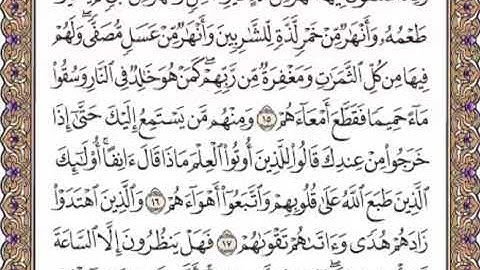 طَعْمُهُۥ وَأَنْهَٰرٌ مِّنْ خَمْرٍ لَّذَّةٍ لِّلشَّٰرِبِينَ وَأَنْهَٰرٌ مِّنْ عَسَلٍ مُّصَفًّى ۖ وَلَهُمْ
فِيهَا مِن كُلِّ ٱلثَّمَرَٰتِ وَمَغْفِرَةٌ مِّن رَّبِّهِمْ ۖ كَمَنْ هُوَ خَٰلِدٌ فِى ٱلنَّارِ وَسُقُوا۟
مَآءً حَمِيمًا فَقَطَّعَ أَمْعَآءَهُمْ ١٥ وَمِنْهُم مَّن يَسْتَمِعُ إِلَيْكَ حَتَّىٰٓ إِذَا
خَرَجُوا۟ مِنْ عِندِكَ قَالُوا۟ لِلَّذِينَ أُوتُوا۟ ٱلْعِلْمَ مَاذَا قَالَ ءَانِفًا ۚ أُو۟لَٰٓئِكَ
ٱلَّذِينَ طَبَعَ ٱللَّهُ عَلَىٰ قُلُوبِهِمْ وَٱتَّبَعُوٓا۟ أَهْوَآءَهُمْ ١٦ وَٱلَّذِينَ ٱهْتَدَوْا۟
زَادَهُمْ هُدًى وَءَاتَىٰهُمْ تَقْوَىٰهُمْ ١٧ فَهَلْ يَنظُرُونَ إِلَّا ٱلسَّاعَةَ